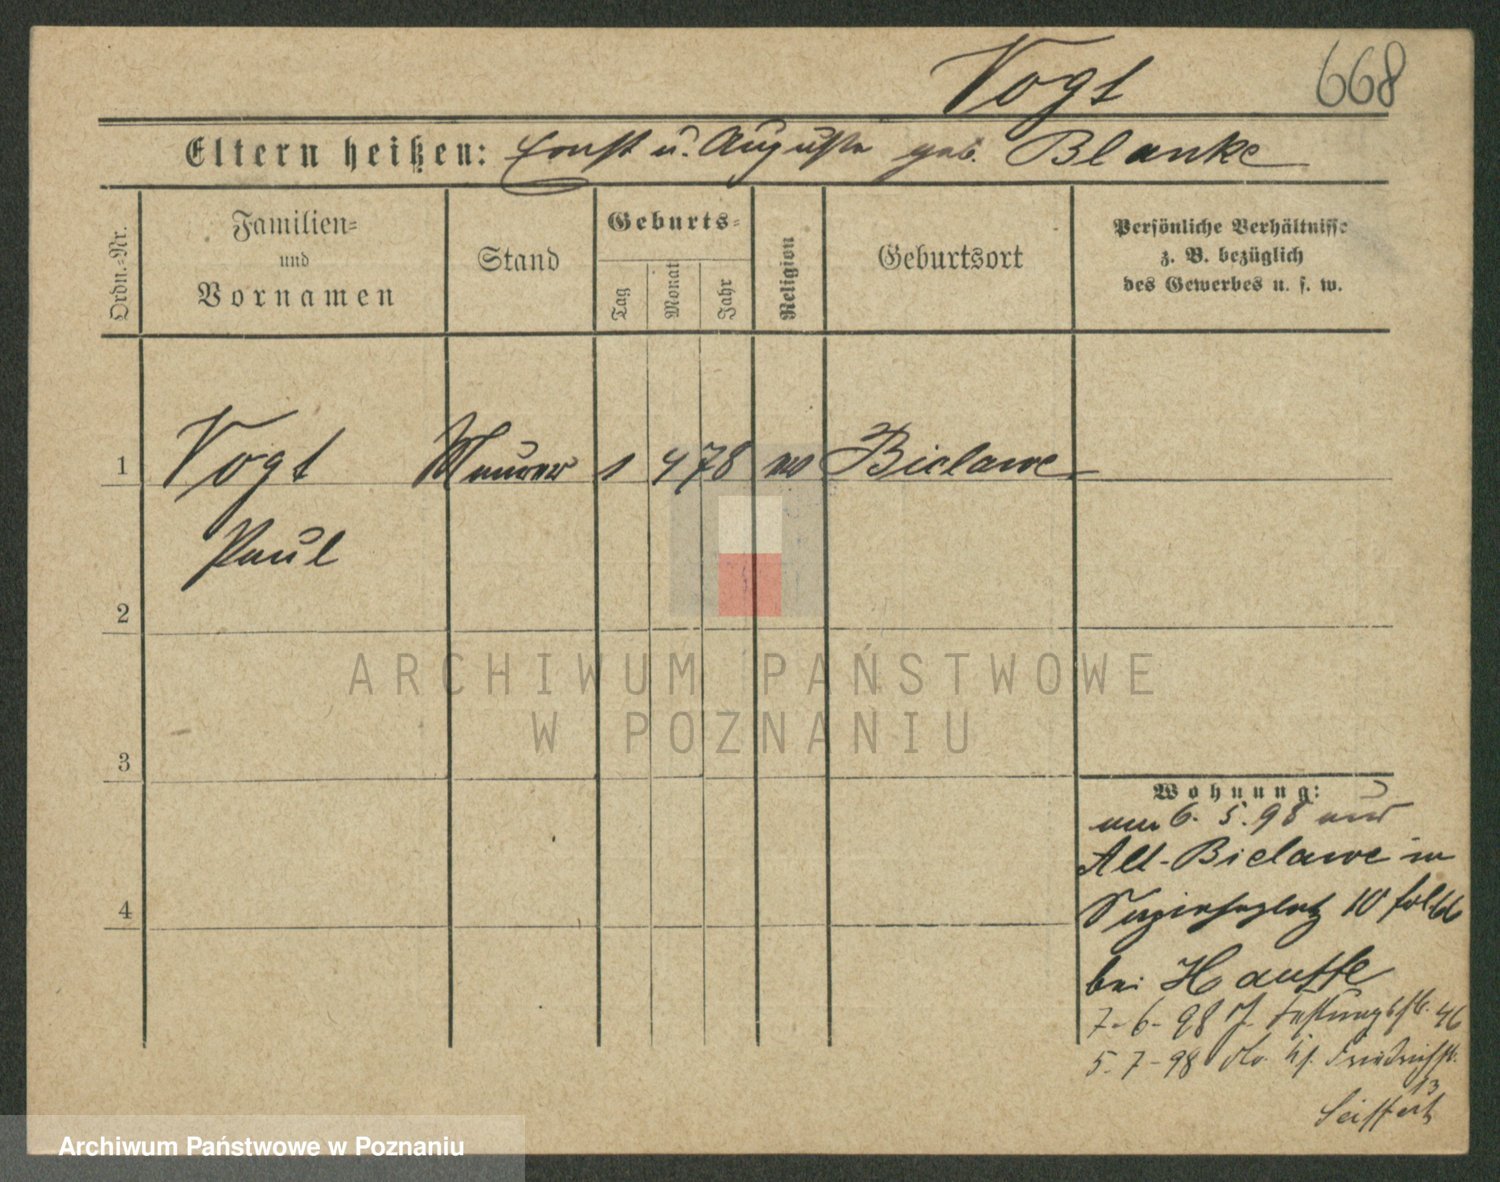 Vogt
668
Eltern heißen: Ernst u. Auguste geb. Blanke
Ordn.-Nr.
Familien-
und
Vornamen
Stand
Geburts-
Tag
Monat
Jahr
Religion
Geburtsort
Persönliche Verhältnisse
z. B. bezüglich
des Gewerbes u. s. w.
1 Vogt Maurer 1 4 78 ev Bielawe
Paul
2
3
4
Wohnung:
am 6. 5. 98 aus
Alt-Bielawe in
10
bei Hauffe
7-6-98 46
5-7-98 Friedrichstr.
13
Seiffert
ARCHIWUM PAŃSTWOWE
W POZNANIU
Archiwum Państwowe w Poznaniu